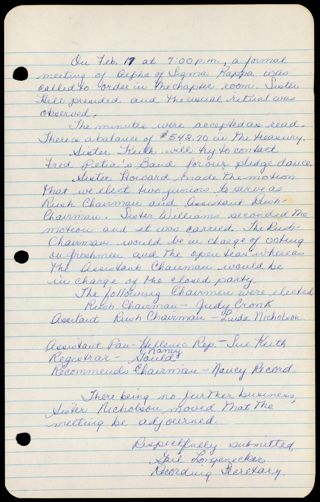 On Feb. 17 at 7:00 p.m., a formal
meeting of Alpha of Sigma Kappa was
called to order in the chapter room. Sister
Hill presided and the usual ritual was
observed.
The minutes were accepted as read.
There is a balance of $542.70 in the treasury.
Sister Keith will try to contact
Fred Petra's Band for our pledge dance.
Sister Howard made the motion
that we elect two juniors to serve as
Rush Chairman and Assistant Rush
Chairman. Sister Williams seconded the
motion and it was carried. The Rush
Chairman would be in charge of voting
on freshmen and the open teas whereas
the Assistant Chairman would be
in charge of the closed party.
The following Chairmen were elected
Rush Chairman - Judy Cronk
Assitant Rush Chairman - Linda Nicholson
Assistant Pan-Hellenic Rep. - Sue Keith
Registrar - Nancy Gould
Recommends Chairman - Nancy Record.
There being no further business,
Sister Nicholson moved that the
meeting be adjourned.
Respectfully submitted,
Gail Longenecker
Recording Secretary